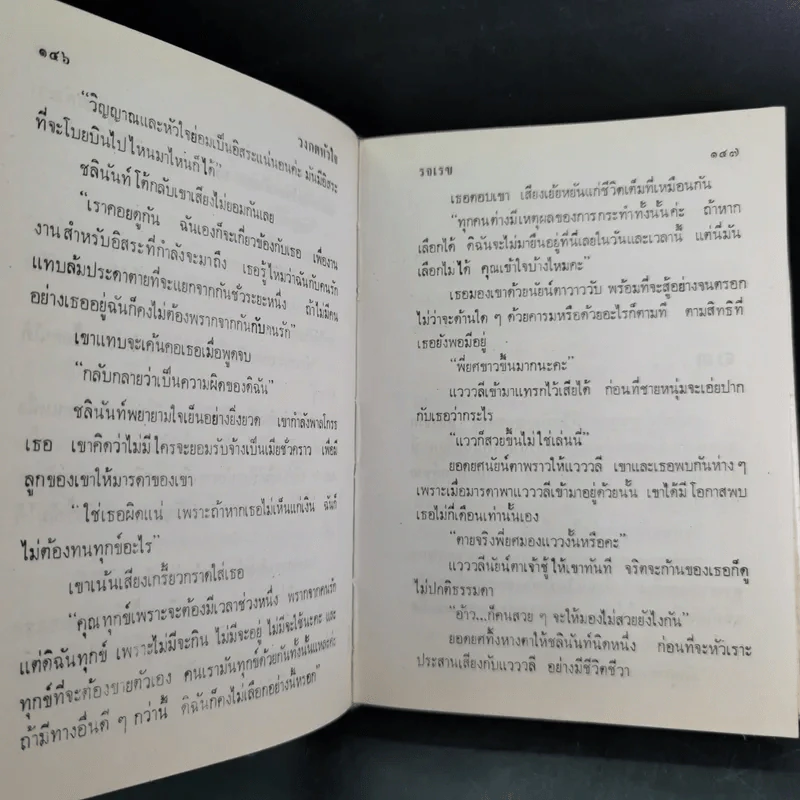 ๑๔๖
วงกตหัวใจ
“วิญญาณและหัวใจย่อมเป็นอิสระแน่นอนค่ะ มันมีอิสระ
ที่จะโบยบินไปไหนมาไหนก็ได้”
ชลินันท์โต้กลับเขาเสียงไม่ยอมกันเลย
“เราคอยดูกัน ฉันเองก็จะเกี่ยวข้องกับเธอ เพื่องาน
งานสำหรับอิสระที่กำลังจะมาถึง เธอรู้ไหมว่าฉันกับคนรัก
แทบล้มประดาตายที่จะแยกจากกันชั่วระยะหนึ่ง ถ้าไม่มีคน
อย่างเธออยู่ฉันก็คงไม่ต้องพรากจากกันกับคนรัก”
เขาแทบจะเค้นคอเธอเมื่อพูดจบ
“กลับกลายว่าเป็นความผิดของดิฉัน”
ชลินันท์พยายามใจเย็นอย่างยิ่งยวด เขากำลังพาลโกรธ
เธอ เขาคิดว่าไม่มีใครจะยอมรับจ้างเป็นเมียชั่วคราว เพื่อมี
ลูกของเขาให้มารดาของเขา
“ใช่เธอผิดแน่ เพราะถ้าหากเธอไม่เห็นแก่เงิน ฉันก็
ไม่ต้องทนทุกข์อะไร”
เขาเน้นเสียงเกรี้ยวกราดใส่เธอ
“คุณทุกข์เพราะจะต้องมีเวลาช่วงหนึ่ง พรากจากคนรัก
แต่ดิฉันทุกข์ เพราะไม่มีจะกิน ไม่มีจะอยู่ ไม่มีจะใช้นะคะ และ
ทุกข์ที่จะต้องขายตัวเอง คนเรามันทุกข์ด้วยกันทั้งนั้นแหละค่ะ
ถ้ามีทางอื่นดี ๆ กว่านี้ ดิฉันก็คงไม่เลือกอย่างนี้หรอก”
รจเรข
๑๔๗
เธอตอบเขา เสียงเย้ยหยันแก่ชีวิตเต็มที่เหมือนกัน
“ทุกคนต่างมีเหตุผลของการกระทำทั้งนั้นค่ะ ถ้าหาก
เลือกได้ ดิฉันจะไม่มายืนอยู่ที่นี่เลยในวันและเวลานี้ แต่นี่มัน
เลือกไม่ได้ คุณเข้าใจบ้างไหมคะ”
เธอมองเขาด้วยนัยน์ตาวาววับ พร้อมที่จะสู้อย่างจนตรอก
ไม่ว่าจะด้านใด ๆ ด้วยคารมหรือด้วยอะไรก็ตามที่ ตามสิทธิที่
เธอยังพอมีอยู่
“พี่ยศขาวขึ้นมากนะคะ”
แวววลีเข้ามาแทรกไว้เสียได้ ก่อนที่ชายหนุ่มจะเอ่ยปาก
กับเธอว่ากระไร
“แววก็สวยขึ้นไม่ใช่เล่นนี่”
ยอดยศนัยน์ตาพราวให้แวววลี เขาและเธอพบกันห่าง ๆ
เพราะเมื่อมารดาพาแวววลีเข้ามาอยู่ด้วยนั้น เขาได้มีโอกาสพบ
เธอไม่กี่เดือนเท่านั้นเอง
“ตายจริงพี่ยศมองแววงั้นหรือคะ”
แวววลีนัยน์ตาเจ้าชู้ให้เขาทันที จริตจะก้านของเธอก็ดู
ไม่ปกติธรรมดา
“อ้าว...ก็คนสวย ๆ จะให้มองไม่สวยยังไงกัน”
ยอดยศทิ้งหางตาให้ชลินันท์นิดหนึ่ง ก่อนที่จะหัวเราะ
ประสานเสียงกับแวววลี อย่างมีชีวิตชีวา